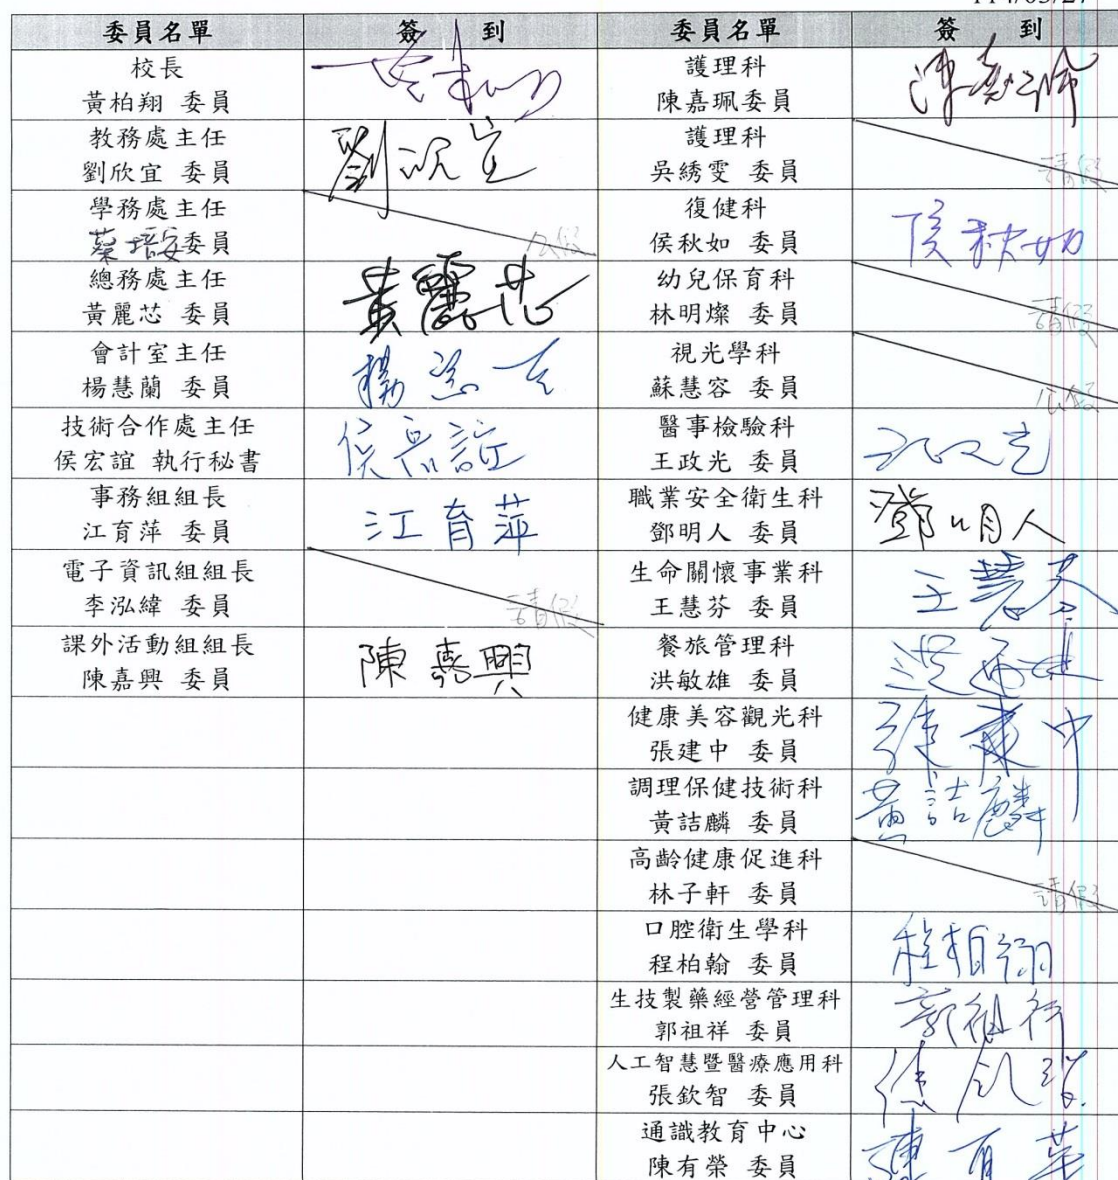 委員名單 簽到 委員名單 簽到
校長
黃柏翔 委員
護理科
陳嘉珮委員
教務處主任
劉欣宜 委員
劉欣宜
護理科
吳綉雯 委員
請假
學務處主任
蔡培安委員
公假
復健科
侯秋如 委員
侯秋如
總務處主任
黃麗芯 委員
黃麗芯
幼兒保育科
林明燦 委員
請假
會計室主任
楊慧蘭 委員
視光學科
蘇慧容 委員
公假
技術合作處主任
侯宏誼 執行秘書
侯宏誼
醫事檢驗科
王政光 委員
事務組組長
江育萍 委員
江育萍
職業安全衛生科
鄧明人 委員
鄧明人
電子資訊組組長
李泓緯 委員
請假
生命關懷事業科
王慧芬 委員
王慧芬
課外活動組組長
陳嘉興 委員
陳嘉興
餐旅管理科
洪敏雄 委員
健康美容觀光科
張建中 委員
張建中
調理保健技術科
黃詰麟 委員
黃詰麟
高齡健康促進科
林子軒 委員
請假
口腔衛生學科
程柏翰 委員
程柏翰
生技製藥經營管理科
郭祖祥 委員
郭祖祥
人工智慧暨醫療應用科
張欽智 委員
通識教育中心
陳有榮 委員
陳有榮